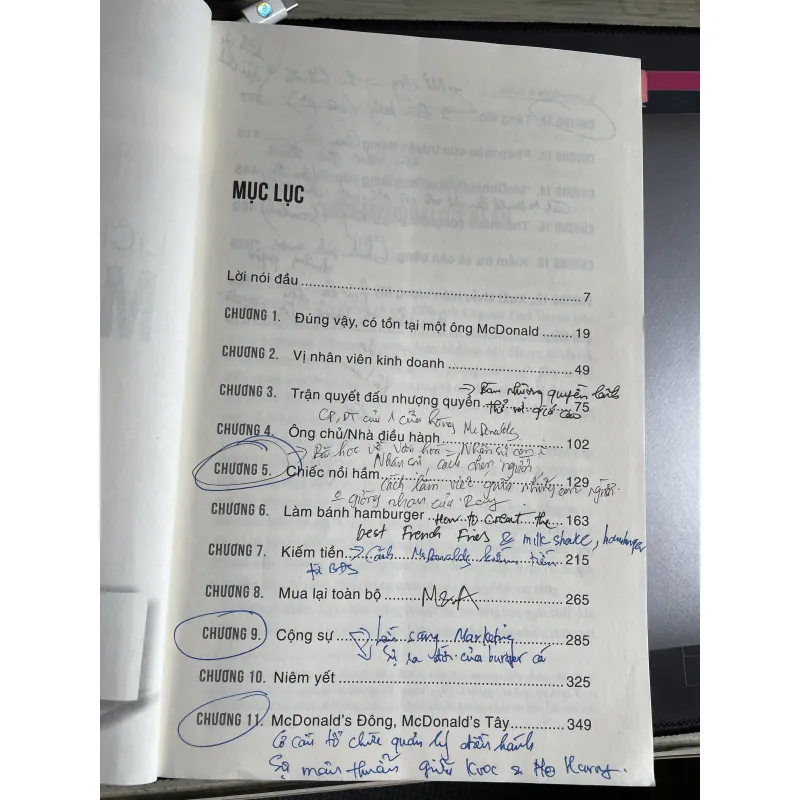 MỤC LỤC
Lời nói đầu ........ 7
CHƯƠNG 1. Đúng vậy, có tồn tại một ông McDonald ........ 19
CHƯƠNG 2. Vị nhân viên kinh doanh ........ 49
→ Bán nhượng quyền lãnh
CHƯƠNG 3. Trận quyết đấu nhượng quyền ........ 75
thổ với giá cao
CP, DT của 1 cửa hàng McDonalds
CHƯƠNG 4. Ông chủ/Nhà điều hành ........ 102
→ Bài học về Văn hoá - Nhân sự
Nhân sự, cách chọn người,
CHƯƠNG 5. Chiếc nồi hầm ........ 129
cách làm việc giữa những con người
giống nhau của Ray
CHƯƠNG 6. Làm bánh hamburger ........ 163
How to creat the
best French Fries & milk shake, hamburger
CHƯƠNG 7. Kiếm tiền ........ 215
→ Cách McDonalds kiếm tiền
từ BĐS
CHƯƠNG 8. Mua lại toàn bộ ........ 265
M&A
CHƯƠNG 9. Cộng sự ........ 285
sang Marketing
Sự ra đời của burger cá
CHƯƠNG 10. Niêm yết ........ 325
CHƯƠNG 11. McDonald's Đông, McDonald's Tây ........ 349
Cơ cấu tổ chức quản lý điều hành
Sự mâu thuẫn giữa Kroc &